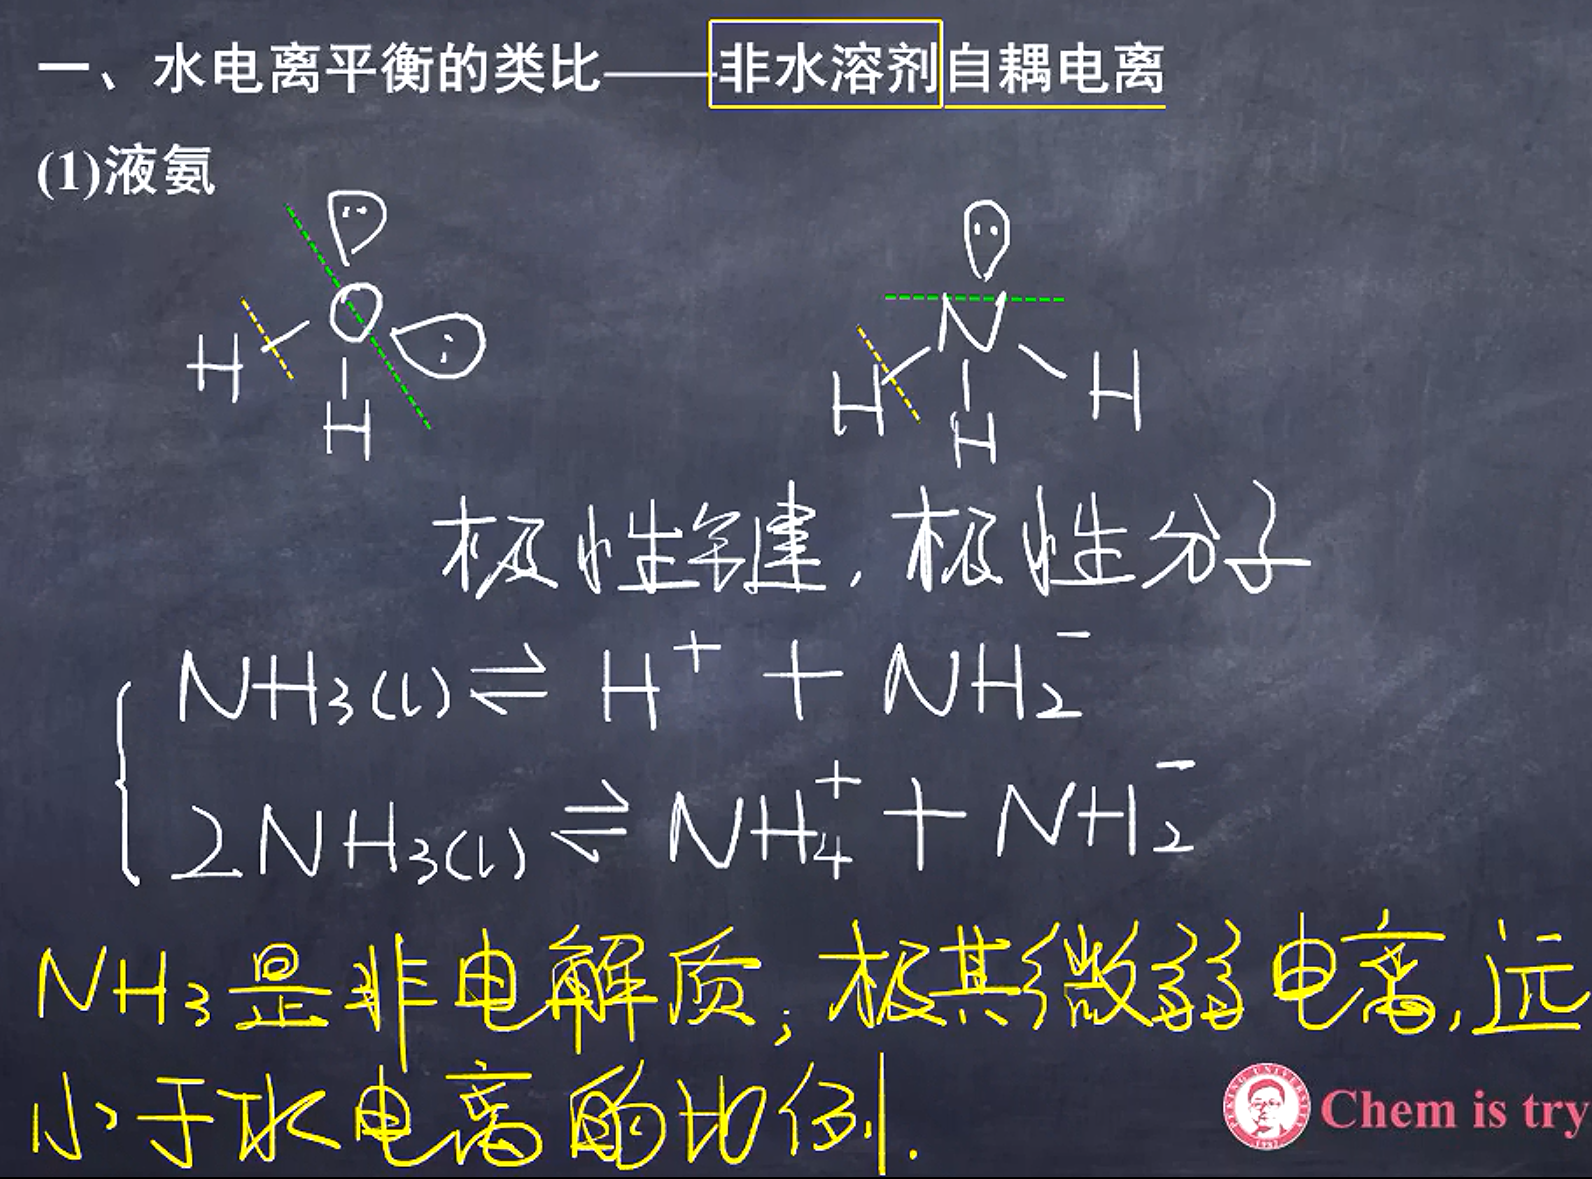 一、水电离平衡的类比——非水溶剂自耦电离
(1)液氨
H O H
H N H H
极性键，极性分子
NH₃(l) ⇌ H⁺ + NH₂⁻
2NH₃(l) ⇌ NH₄⁺ + NH₂⁻
NH₃是非电解质；极其微弱电离，远
小于水电离的比例.
Chem is try